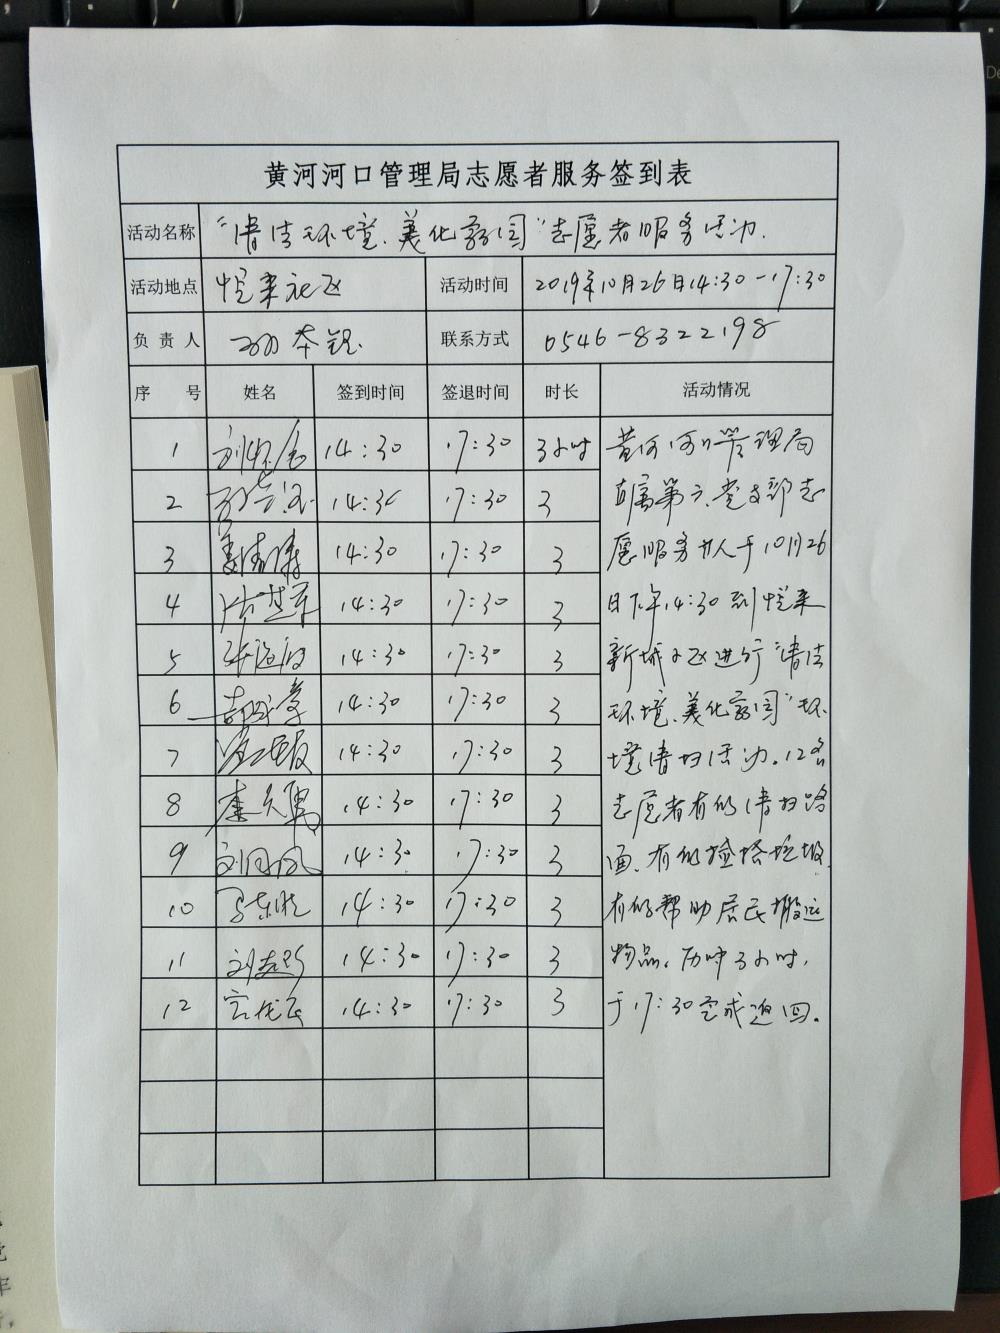 黄河河口管理局志愿者服务签到表
活动名称 “清洁环境、美化家园”志愿者服务活动.
活动地点 悦来社区 活动时间 2019年10月26日14:30-17:30
负责人 孙本轻 联系方式 0546-8322198
序号 姓名 签到时间 签退时间 时长 活动情况
1 14:30 17:30 3小时
2 14:30 17:30 3
3 14:30 17:30 3
4 14:30 17:30 3
5 14:30 17:30 3
6 14:30 17:30 3
7 14:30 17:30 3
8 14:30 17:30 3
9 刘同凤 14:30 17:30 3
10 14:30 17:30 3
11 14:30 17:30 3
12 14:30 17:30 3
黄河河口管理局
直属第六党支部志
愿服务 于10月26
日下午14:30到悦来
新城小区进行“清洁
环境、美化家园”环
境清扫活动.12名
志愿者有的清扫路
面、有的捡拾垃圾、
有的帮助居民搬运
物品。历时3小时,
于17:30完成返回.
De